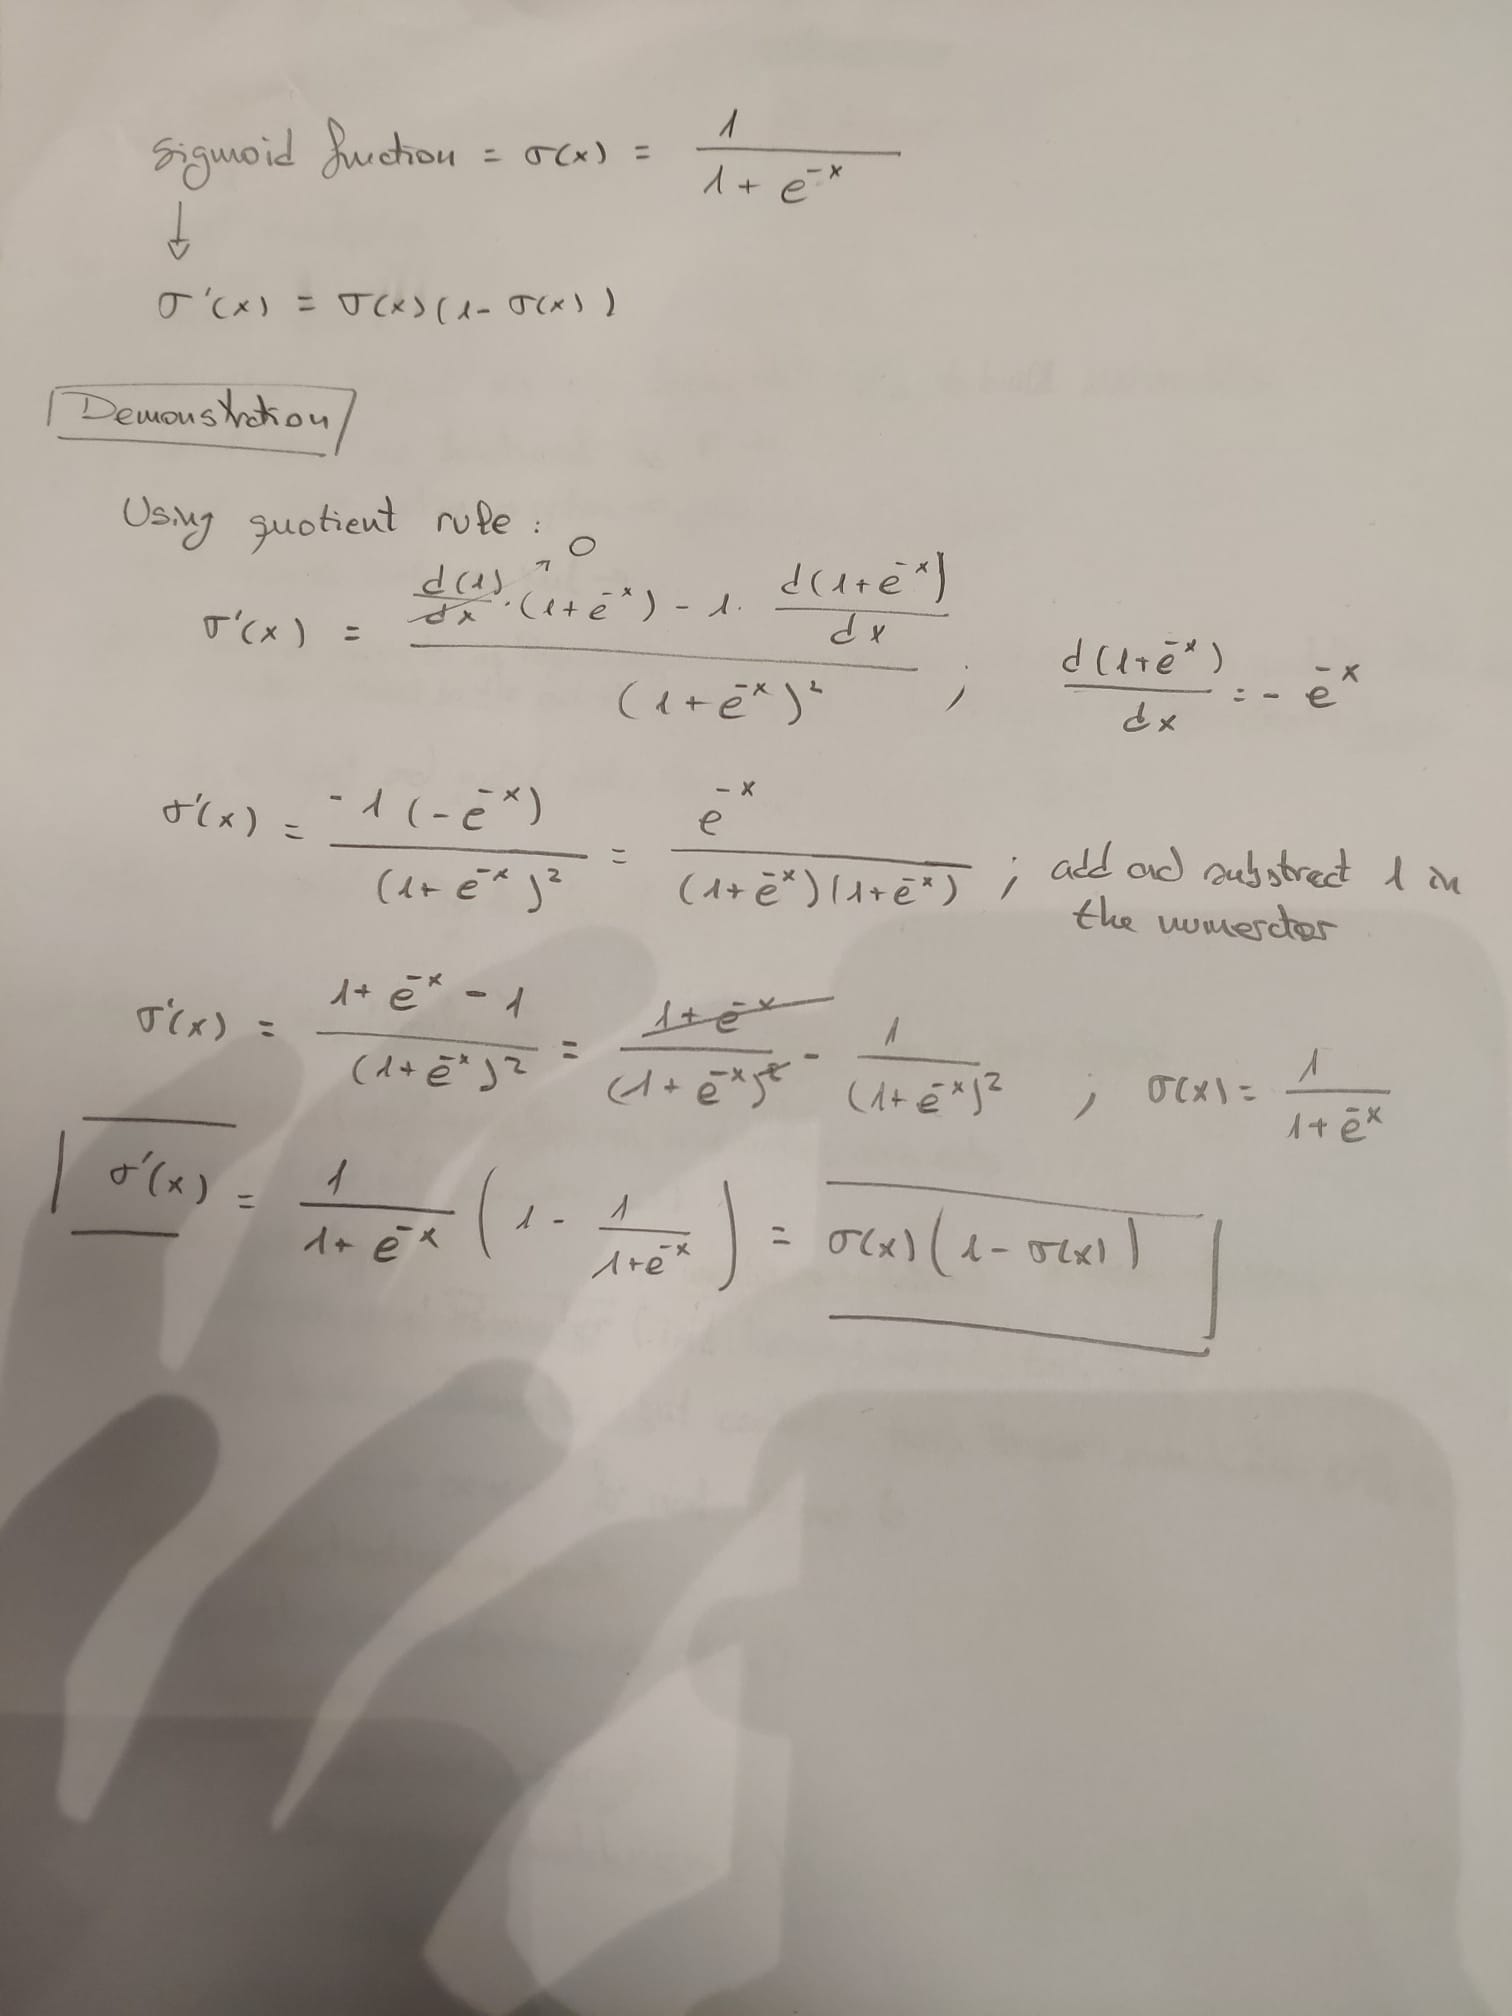 Sigmoid function = σ(x) = 1 / (1 + e^-x)
↓
σ'(x) = σ(x)(1 - σ(x))
Demonstration
Using quotient rule:
σ'(x) = (d(1)/dx · (1+e^-x) - 1 · d(1+e^-x)/dx) / (1+e^-x)^2 ; d(1+e^-x)/dx = - e^-x
↗ 0
σ'(x) = -1(-e^-x) / (1+e^-x)^2 = e^-x / (1+e^-x)(1+e^-x) ; add and substract 1 in
the numerator
σ'(x) = (1+e^-x - 1) / (1+e^-x)^2 = (1+e^-x) / (1+e^-x)^2 - 1 / (1+e^-x)^2 ; σ(x) = 1 / (1+e^-x)
σ'(x) = 1 / (1+e^-x) (1 - 1 / (1+e^-x)) = σ(x)(1 - σ(x))